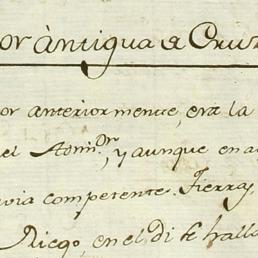 or àntigua a Cruz
or anteriormente, era la
el Adm.on, y aunque en a
via competente tierra y
Riego, en el di